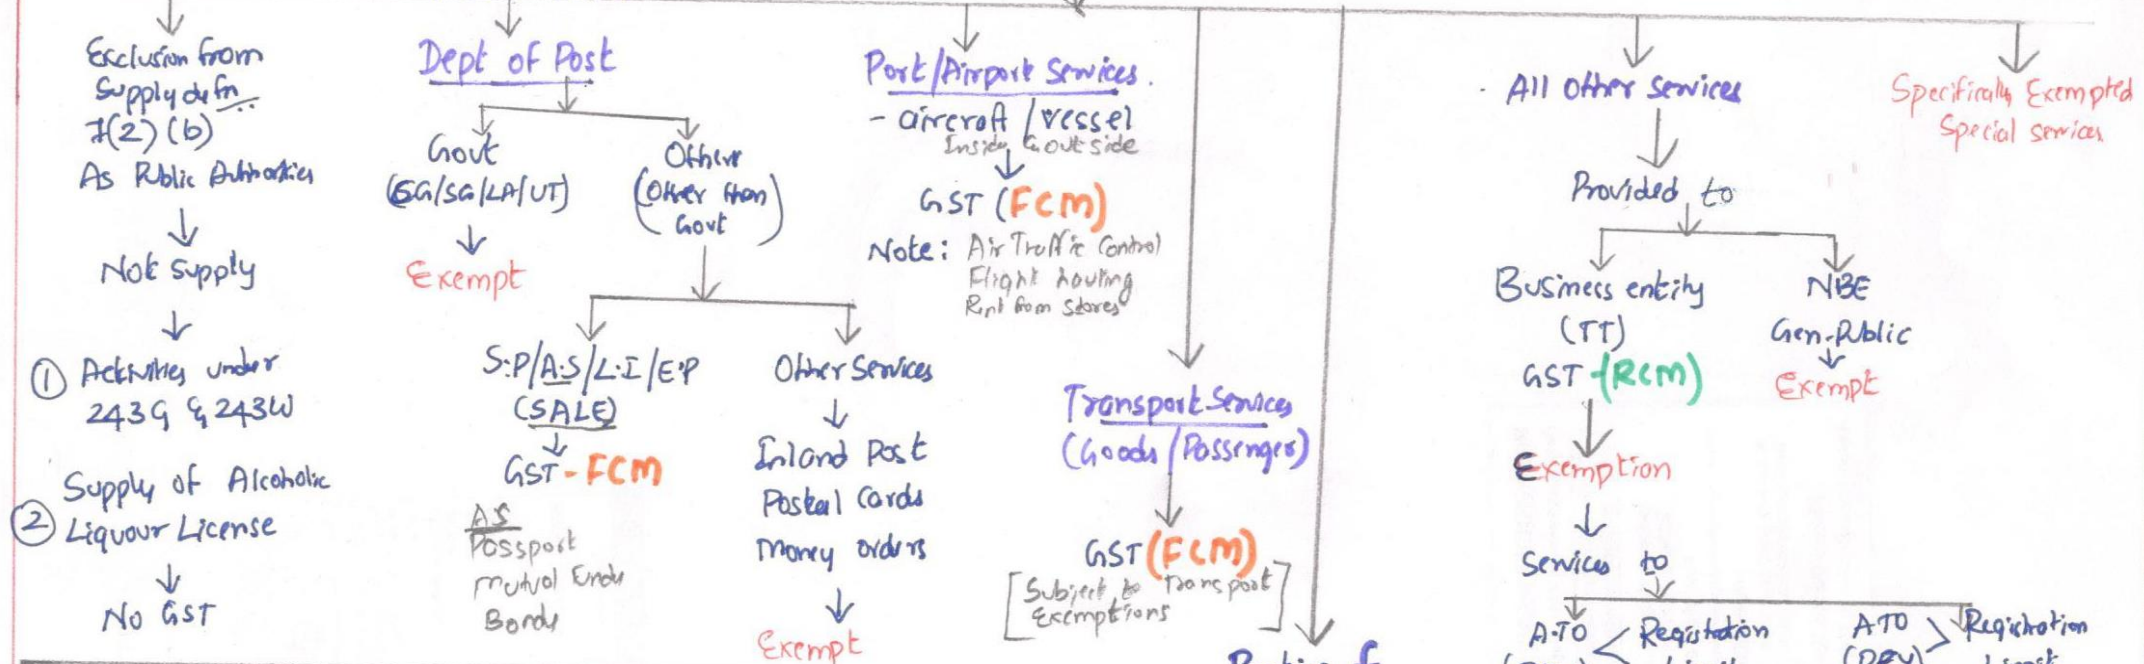 Exclusion from
Supply defn
7(2)(b)
As Public Authorities
Not supply
① Activities under
243G & 243W
② Supply of Alcoholic
Liquour License
No GST
Dept of Post
Govt
(CG/SG/LA/UT)
Exempt
Others
(Other than
Govt)
S.P/A.S/L.I/E.P
(SALE)
GST - FCM
AS
Passport
Mutual Funds
Bonds
Other Services
Inland Post
Postal Cards
Money orders
Exempt
Port/Airport Services.
- aircraft / vessel
Inside & outside
GST (FCM)
Note: Air Traffic Control
Flight
Rent from stores
Transport Services
(Goods/Passenger)
GST (FCM)
[Subject to Transport
Exemptions]
All Other services
Provided to
Business entity
(TT)
GST - (RCM)
Exemption
Services to
A.TO < Registration
ATO > Registration
NBE
Gen-Public
Exempt
Specifically Exempted
Special services